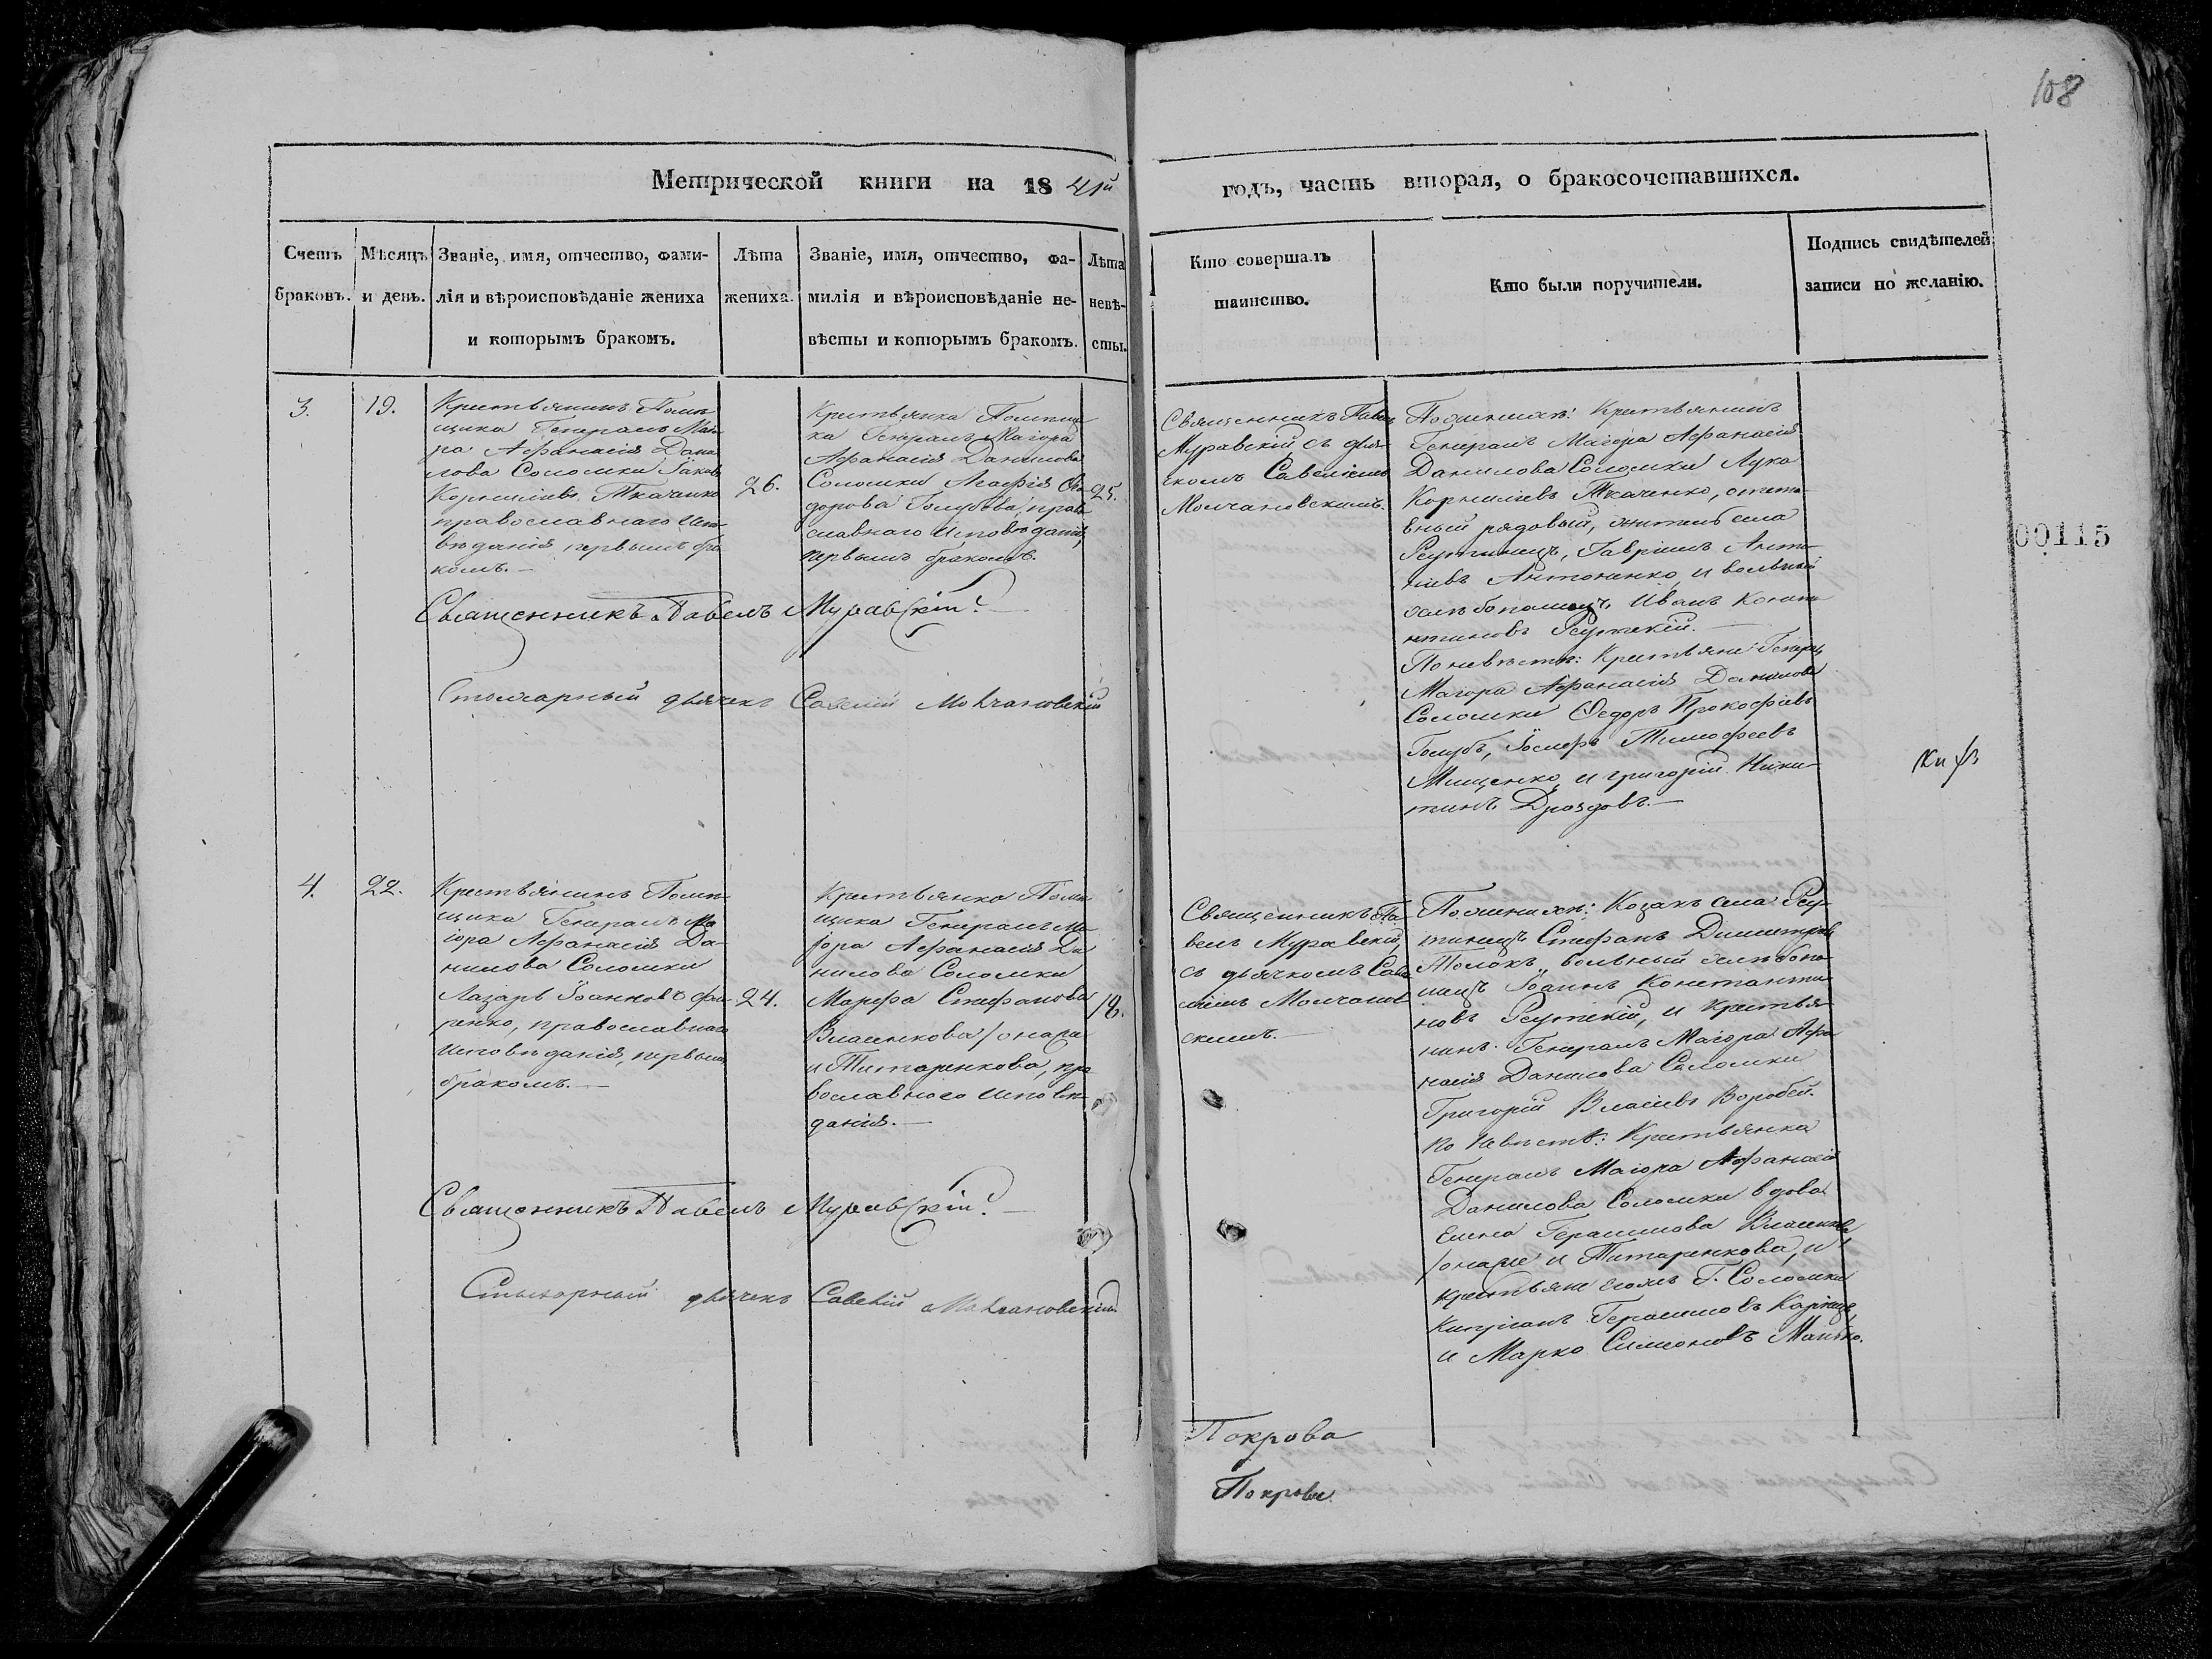 108
Метрической книги на 18 41й
годъ, часть вторая, о бракосочетавшихся.
Счетъ
браковъ.
Мѣсяцъ
и день.
Званіе, имя, отчество, фами-
лія и вѣроисповѣданіе жениха
и которымъ бракомъ.
Лѣта
жениха.
Званіе, имя, отчество, фа-
милія и вѣроисповѣданіе не-
вѣсты и которымъ бракомъ.
Лѣта
невѣ-
сты.
Кто совершалъ
таинство.
Кто были поручители.
Подпись свидѣтелей
записи по желанію.
3.
19.
Крестьянинъ Помѣ
щика Генералъ Маі
ра Афанасія Дани
лова Соломки Іаковъ
Корниліевъ Ткаченко
православнаго Испо
вѣданія, первымъ бра
комъ.
26.
Крестьянка Помѣщи
ка Генералъ Маіора
Афанасія Данилова
Соломки Агафія Ѳе
дорова Голубова, право
славнаго Исповѣданія,
первымъ бракомъ.
25.
Священникъ Павелъ
Муравскій, съ дья-
чкомъ Савеліемъ
Молчановскимъ.
По женихѣ: Крестьянинъ
Генералъ Маіора Афанасія
Данилова Соломки Лука
Корниліевъ Ткаченко, отста-
вный рядовый, житель села
Гавріилъ Анто-
ніевъ Антоненко, и вольный
хлѣбопашецъ Иванъ Конста
нтиновъ
По невѣстѣ: Крестьяне Генералъ
Маіора Афанасія Данилова
Соломки Ѳедоръ Прокофіевъ
Голубъ, Іосифъ Тимофеевъ
Мищенко, и Григорій Ники-
тинъ Дроздовъ.
Священникъ Павелъ Муравскій.
дьячекъ Савелій Молчановскій
00115
4.
22.
Крестьянинъ Помѣ-
щика Генералъ Ма
іора Афанасія Да-
нилова Соломки
Лазарь Іоанновъ
ренко, православнаго
Исповѣданія, первымъ
бракомъ.
24.
Крестьянка Помѣ
щика Генералъ Ма-
іора Афанасія Да
нилова Соломки
Марфа Стефанова
Власенкова /онаже
и Титаренкова, пра
вославнаго Исповѣ-
данія.
18.
Священникъ Па-
велъ Муравскій,
съ дьячкомъ Саве
ліемъ Молчанов-
скимъ.
По женихѣ: Козакъ села
Стефанъ Димитріевъ
вольный хлѣбопа-
шецъ Іоаннъ Константи-
новъ и Крестья-
нинъ Генералъ Маіора Афа
насія Данилова Соломки
Григорій Власіевъ Воробей.
По невѣстѣ: Крестьянка
Генералъ Маіора Афанасія
Данилова Соломки вдова
Елена Герасимова Власенкова
/онаже и Титаренкова, и
крестьяне Г. Соломки
Кипріанъ Герасимовъ
и Марко Симоновъ
Священникъ Павелъ Муравскій.
дьячекъ Савелій Молчановскій
Покрова
Покрова